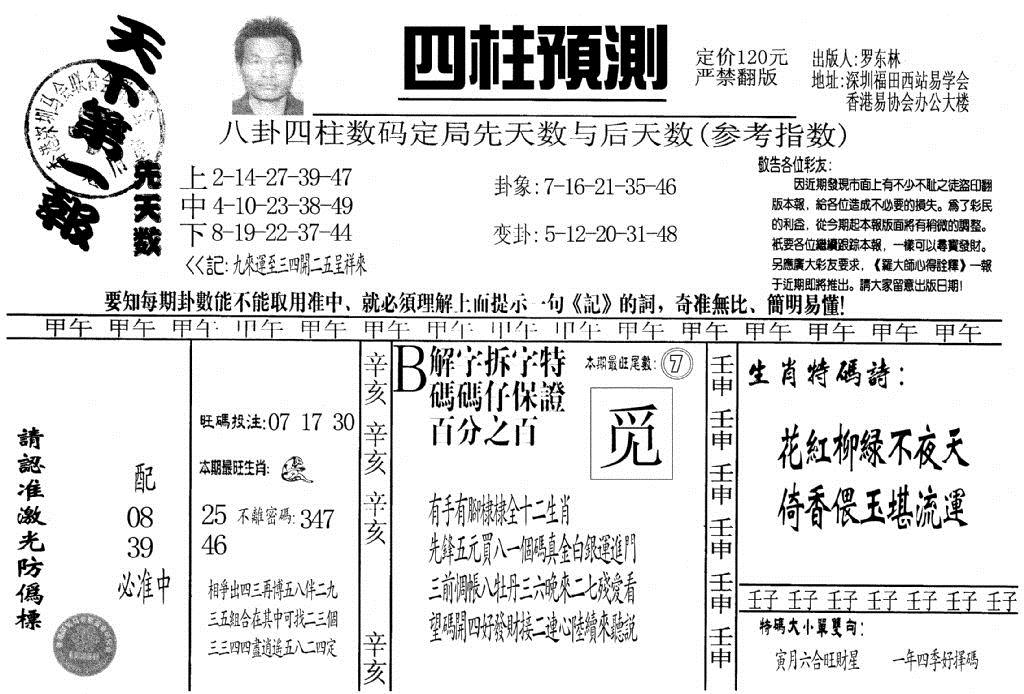 天下第一報
四柱預測
定价120元
严禁翻版
出版人:罗东林
地址:深圳福田西站易学会
香港易协会办公大楼
八卦四柱数码定局先天数与后天数(参考指数)
先天数
上 2-14-27-39-47
中 4-10-23-38-49
下 8-19-22-37-44
<<記:九來運至三四開二五呈祥來
卦象:7-16-21-35-46
变卦:5-12-20-31-48
敬告各位彩友:
因近期發現市面上有不少不耻之徒盜印翻
版本報,給各位造成不必要的損失。爲了彩民
的利益,從今期起本報版面將有稍微的調整。
衹要各位繼續跟踪本報,一樣可以尋寶發財。
另應廣大彩友要求,《羅大師心得詮釋》一報
于近期即將推出。請大家留意出版日期!
要知每期卦數能不能取用准中、就必須理解上面提示一句《記》的詞,奇准無比、簡明易懂!
甲午 甲午 甲午 甲午 甲午 甲午 甲午 甲午 甲午 甲午 甲午 甲午 甲午 甲午 甲午
請認准激光防僞標
配
08
39
必准中
旺碼投注:07 17 30
本期最旺生肖:
25 不離密碼:347
46
相爭出四三再博五八伴二九
三五組合在其中可找二三個
三三四四盡逍遙五八二四定
辛亥 辛亥 辛亥 辛亥
B 解字拆字特
碼碼仔保證
百分之百
本期最旺尾數:7
觅
有手有腳棣棣全十二生肖
先鋒五元買八一個碼真金白銀運進門
三前惆帳八牡丹三六晚來二七殘愛看
望碼開四好發財接二連心陸續來聽説
壬申 壬申 壬申 壬申 壬申 壬申
生肖特碼詩:
花紅柳緑不夜天
倚香偎玉堪流運
壬子 壬子 壬子 壬子 壬子 壬子 壬子
特碼大小單雙句:
寅月六合旺財星 一年四季好擇碼